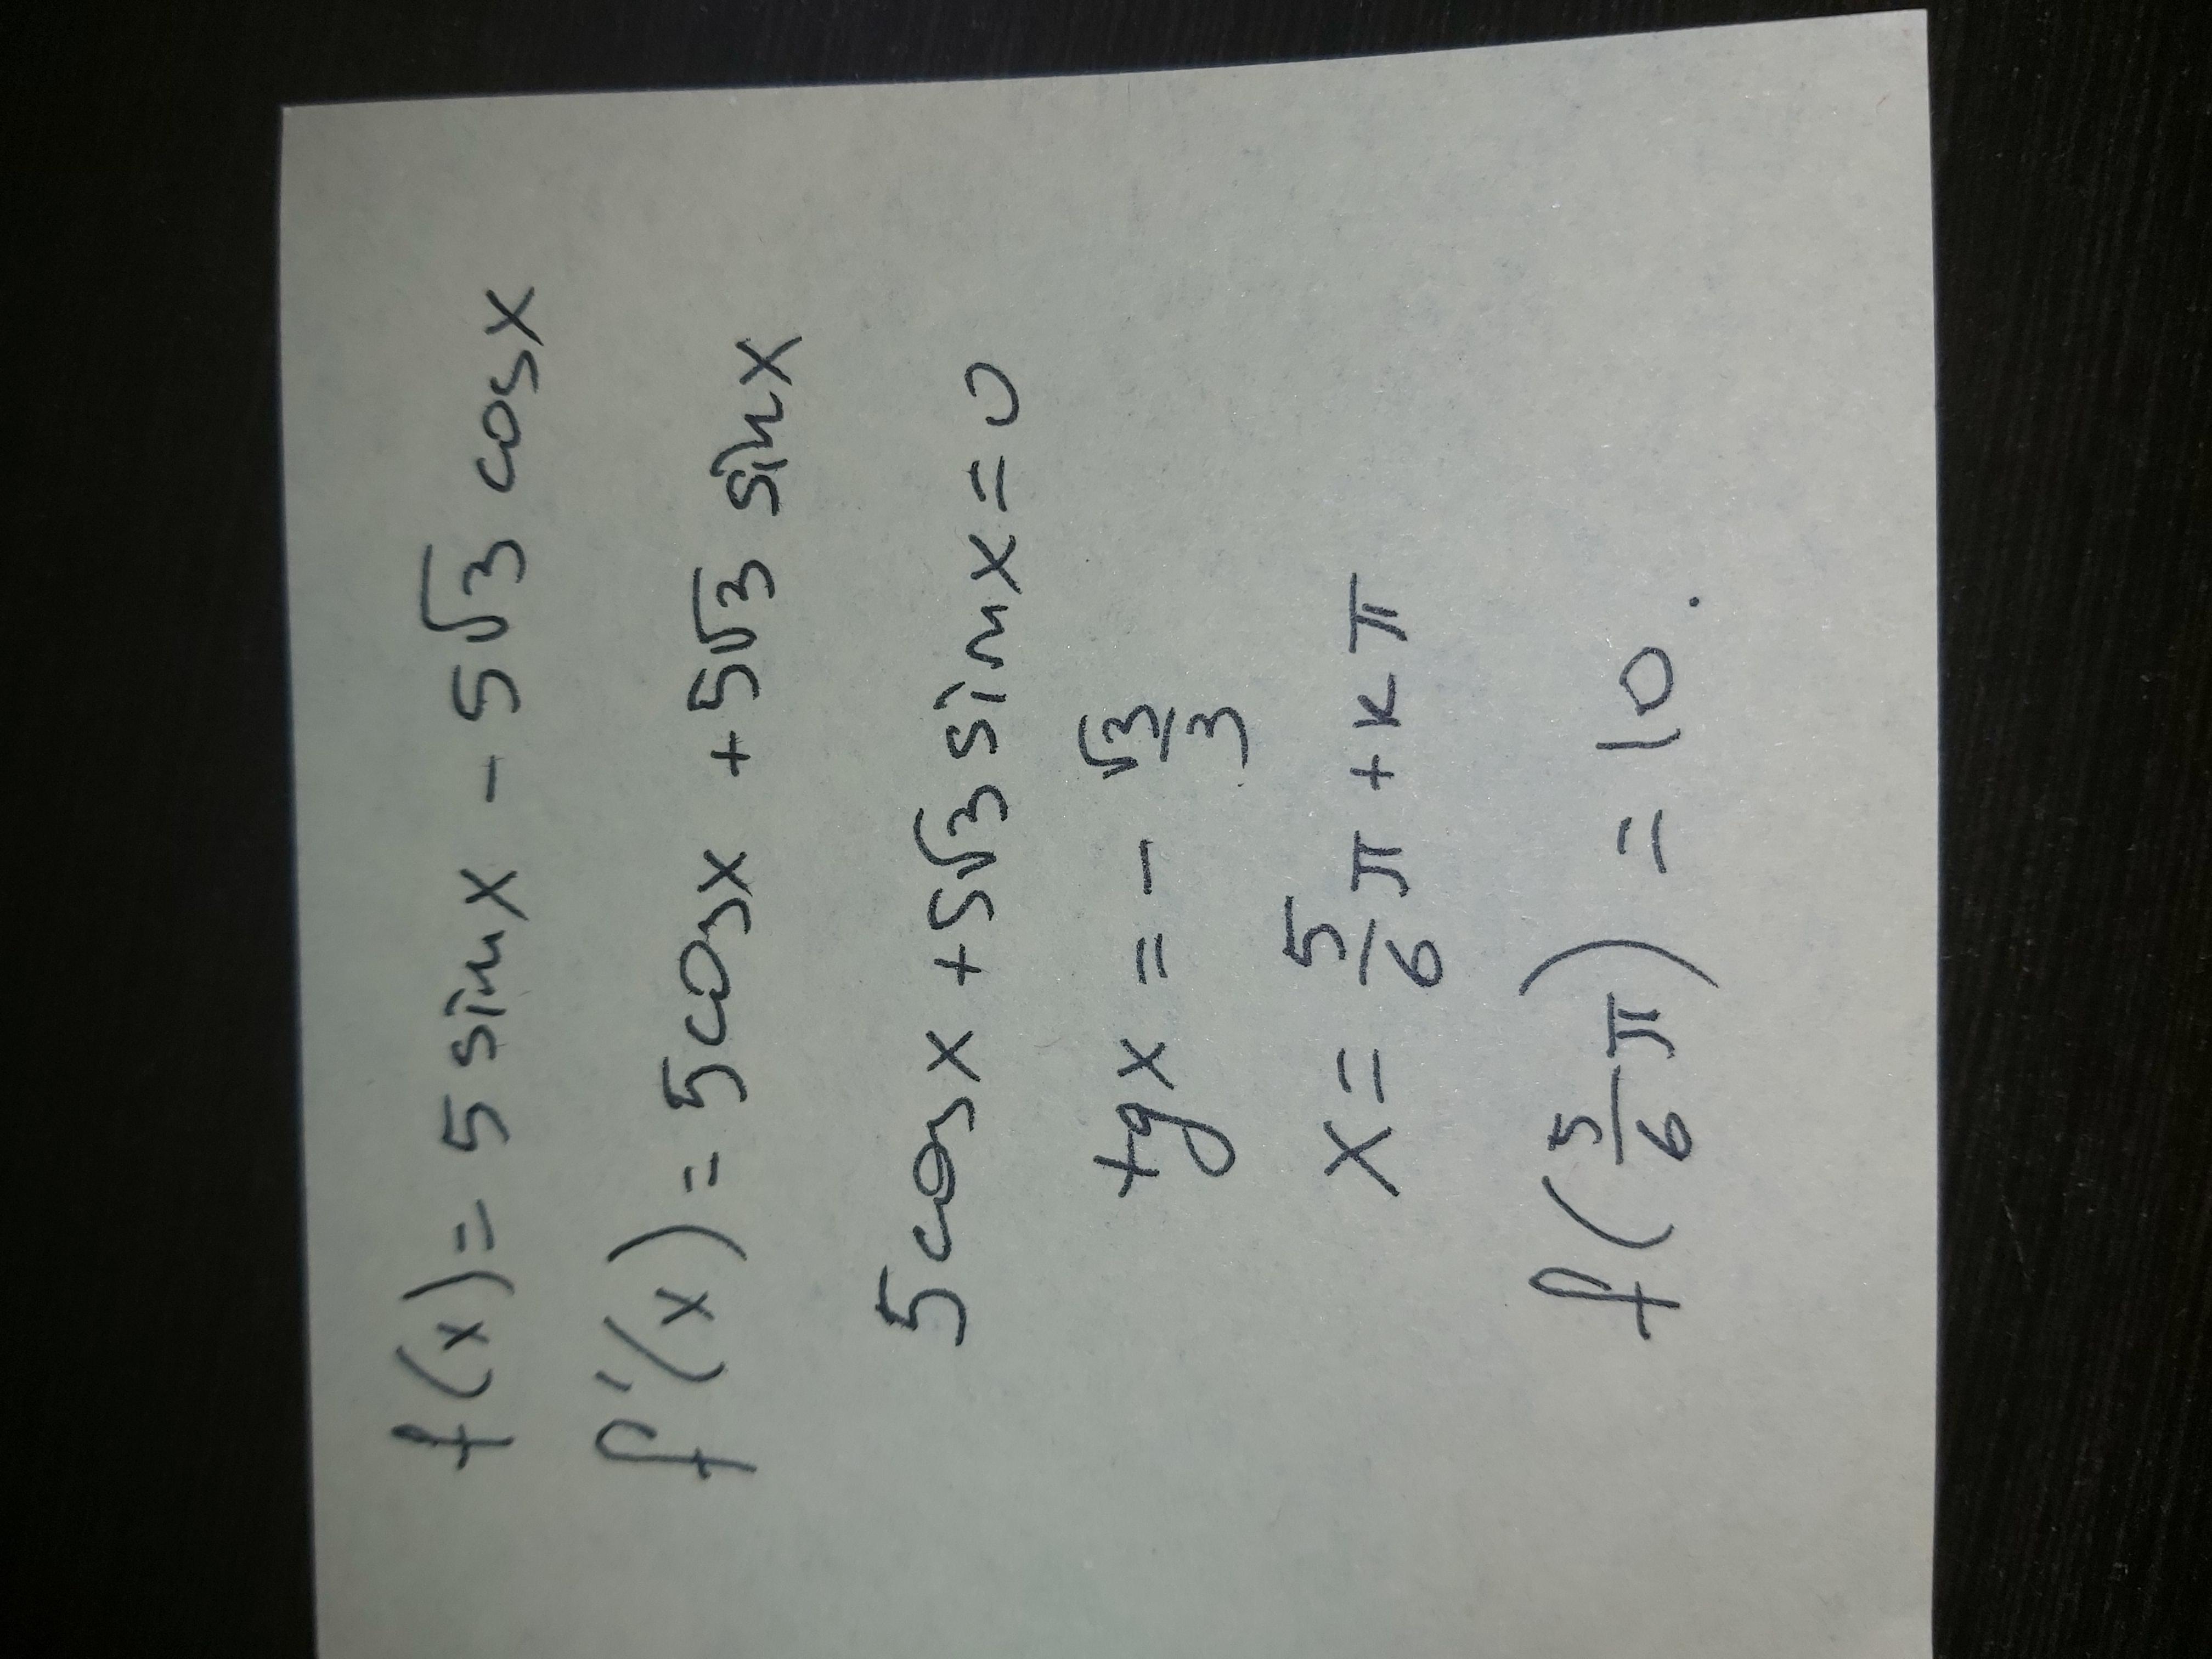 f(x) = 5 sinx - 5√3 cosx
f'(x) = 5cosx + 5√3 sinx
5cosx + 5√3 sinx = 0
tgx = - √3/3
x = 5/6 π + kπ
f(5/6 π) = 10.